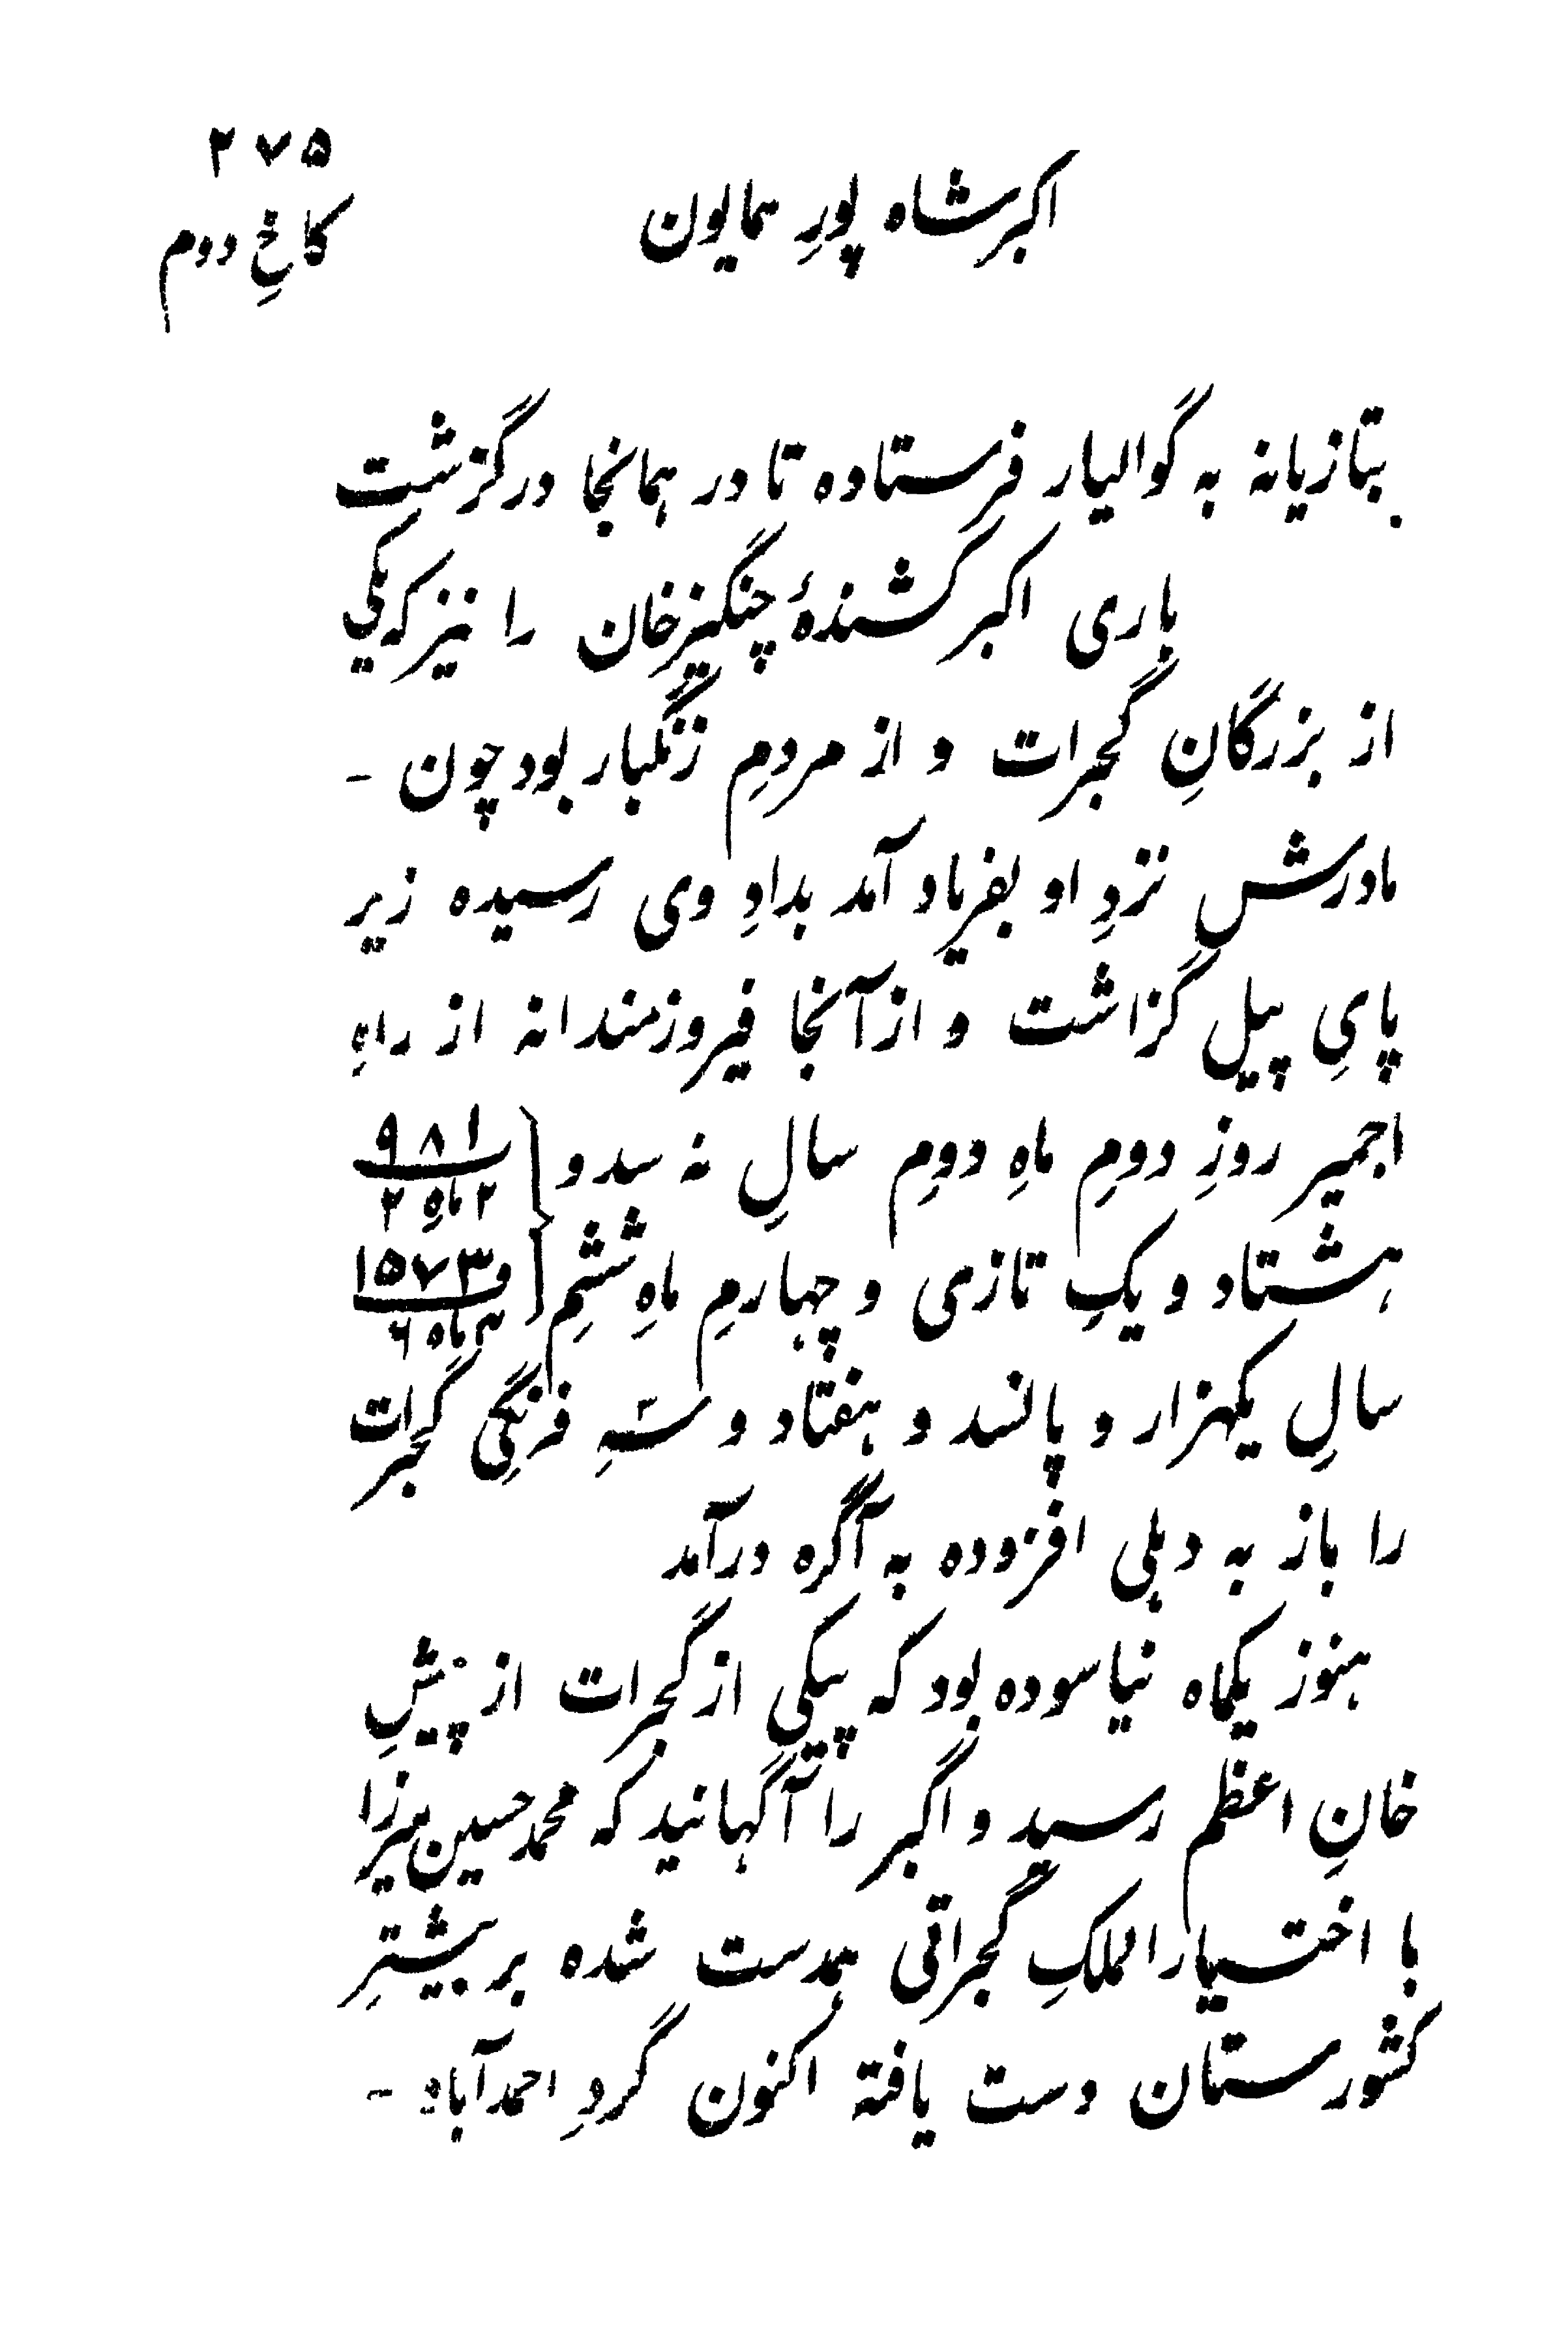 ۲۷۵
اکبرشاه پورِ همایون
کاخِ دوم
بتازیانه به گوالیار فرستاده تا در همانجا درگزشت
باری اکبر کشندهٔ چنگیزخان را نیز که یکی
از بزرگانِ گجرات و از مردمِ زنگبار بود چون -
مادرش نزدِ او بفریاد آمد بدادِ وی رسیده زیر
پایِ پیل گزاشت و ازآنجا فیروزمندانه از راهِ
اجمیر روزِ دومِ ماهِ دومِ سالِ نه سد و
۹۸۱
۲ ماهِ ۲
هشتاد و یکِ تازی و چهارمِ ماهِ ششمِ
و ۱۵۷۳
۴ ماه ۶
سالِ یکهزار و پانسد و هفتاد و سهِ فرنگیِ گجرات
را باز به دهلی افزوده به آگره درآمد
هنوز یکماه نیاسوده بود که پیکی از گجرات از پیشِ
خانِ اعظم رسید و اکبر را آگهانید که محمدحسین میرزا
با اختیارالملکِ گجراتی همدست شده بر بیشترِ
کشورستان دست یافته اکنون گردِ احمدآباد -